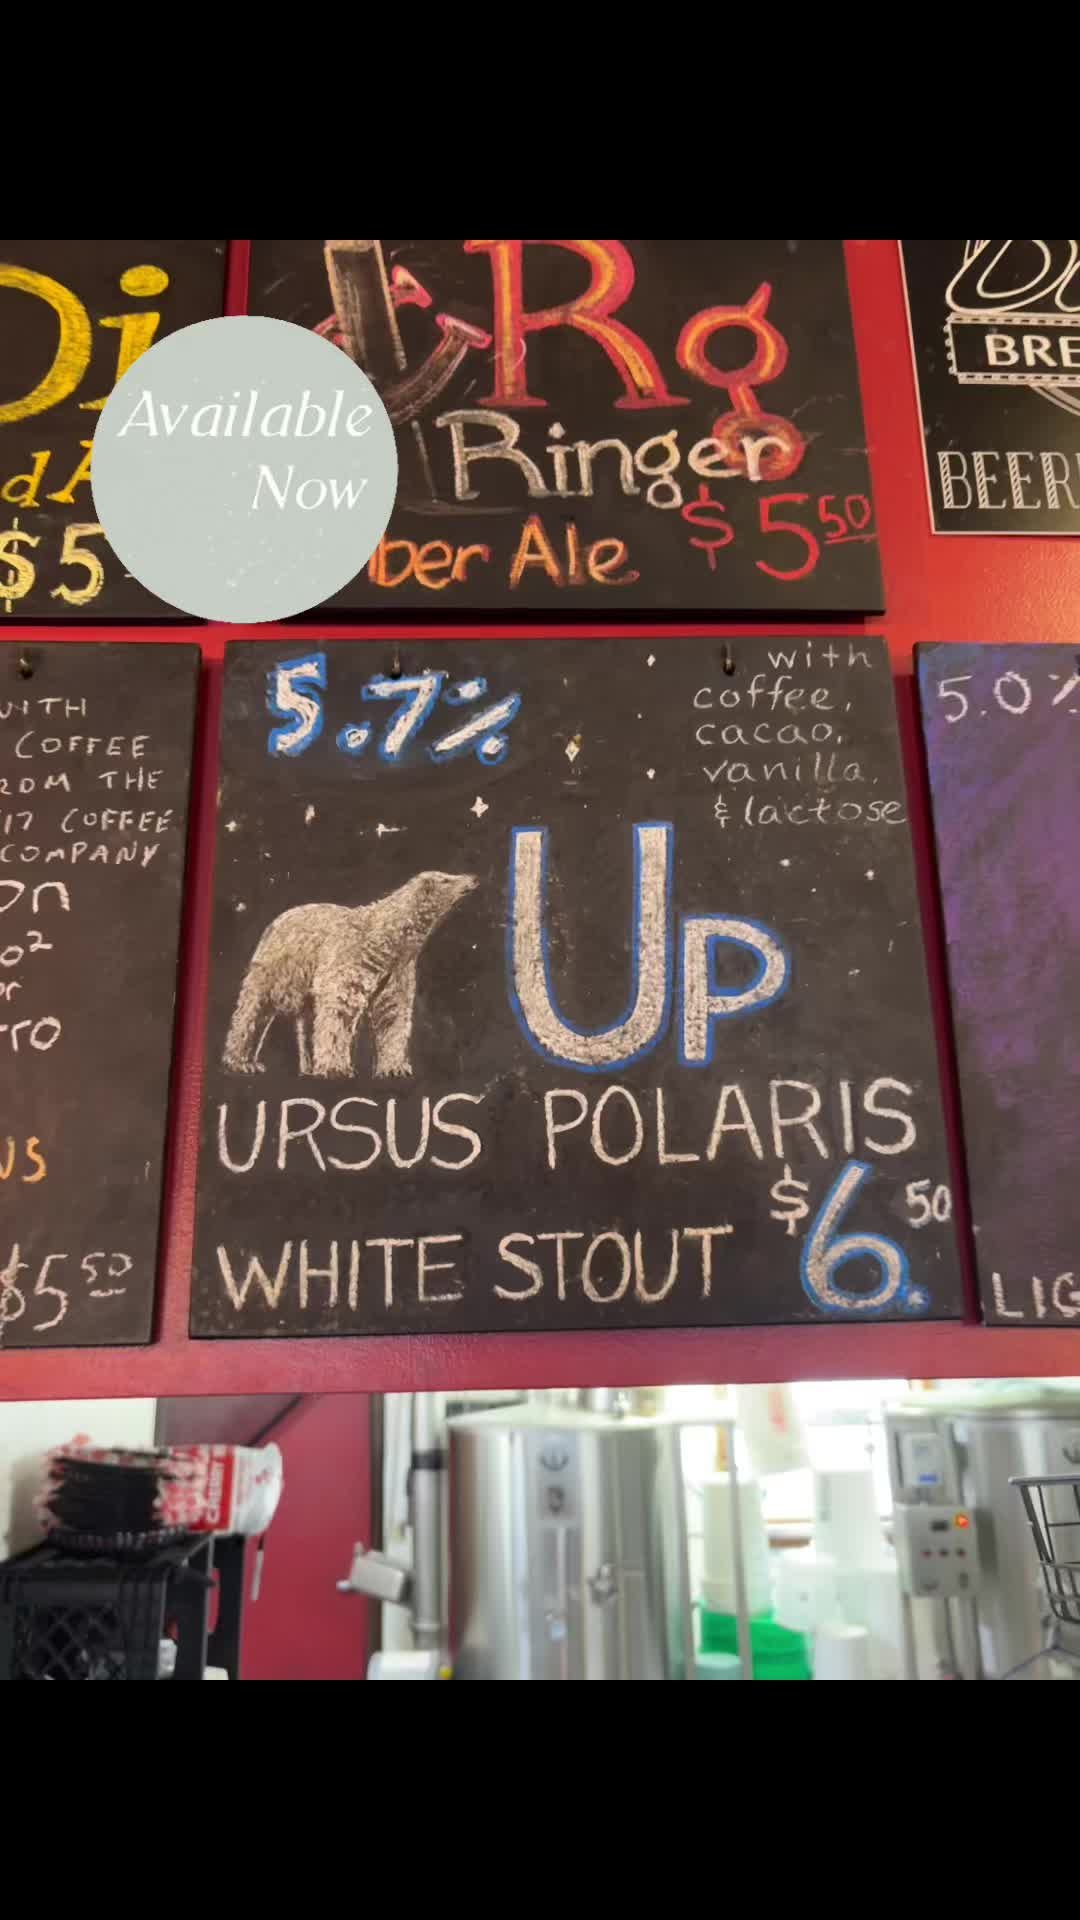 Di
Rg
BRE
Available
Now
Ringer
BEER
$5
ber Ale
$5 50
5.7%
with
coffee,
cacao,
vanilla,
& lactose
WITH
COFFEE
FROM THE
COFFEE
COMPANY
5.0%
Up
URSUS POLARIS
WHITE STOUT
$6.50
$5 50
LIG